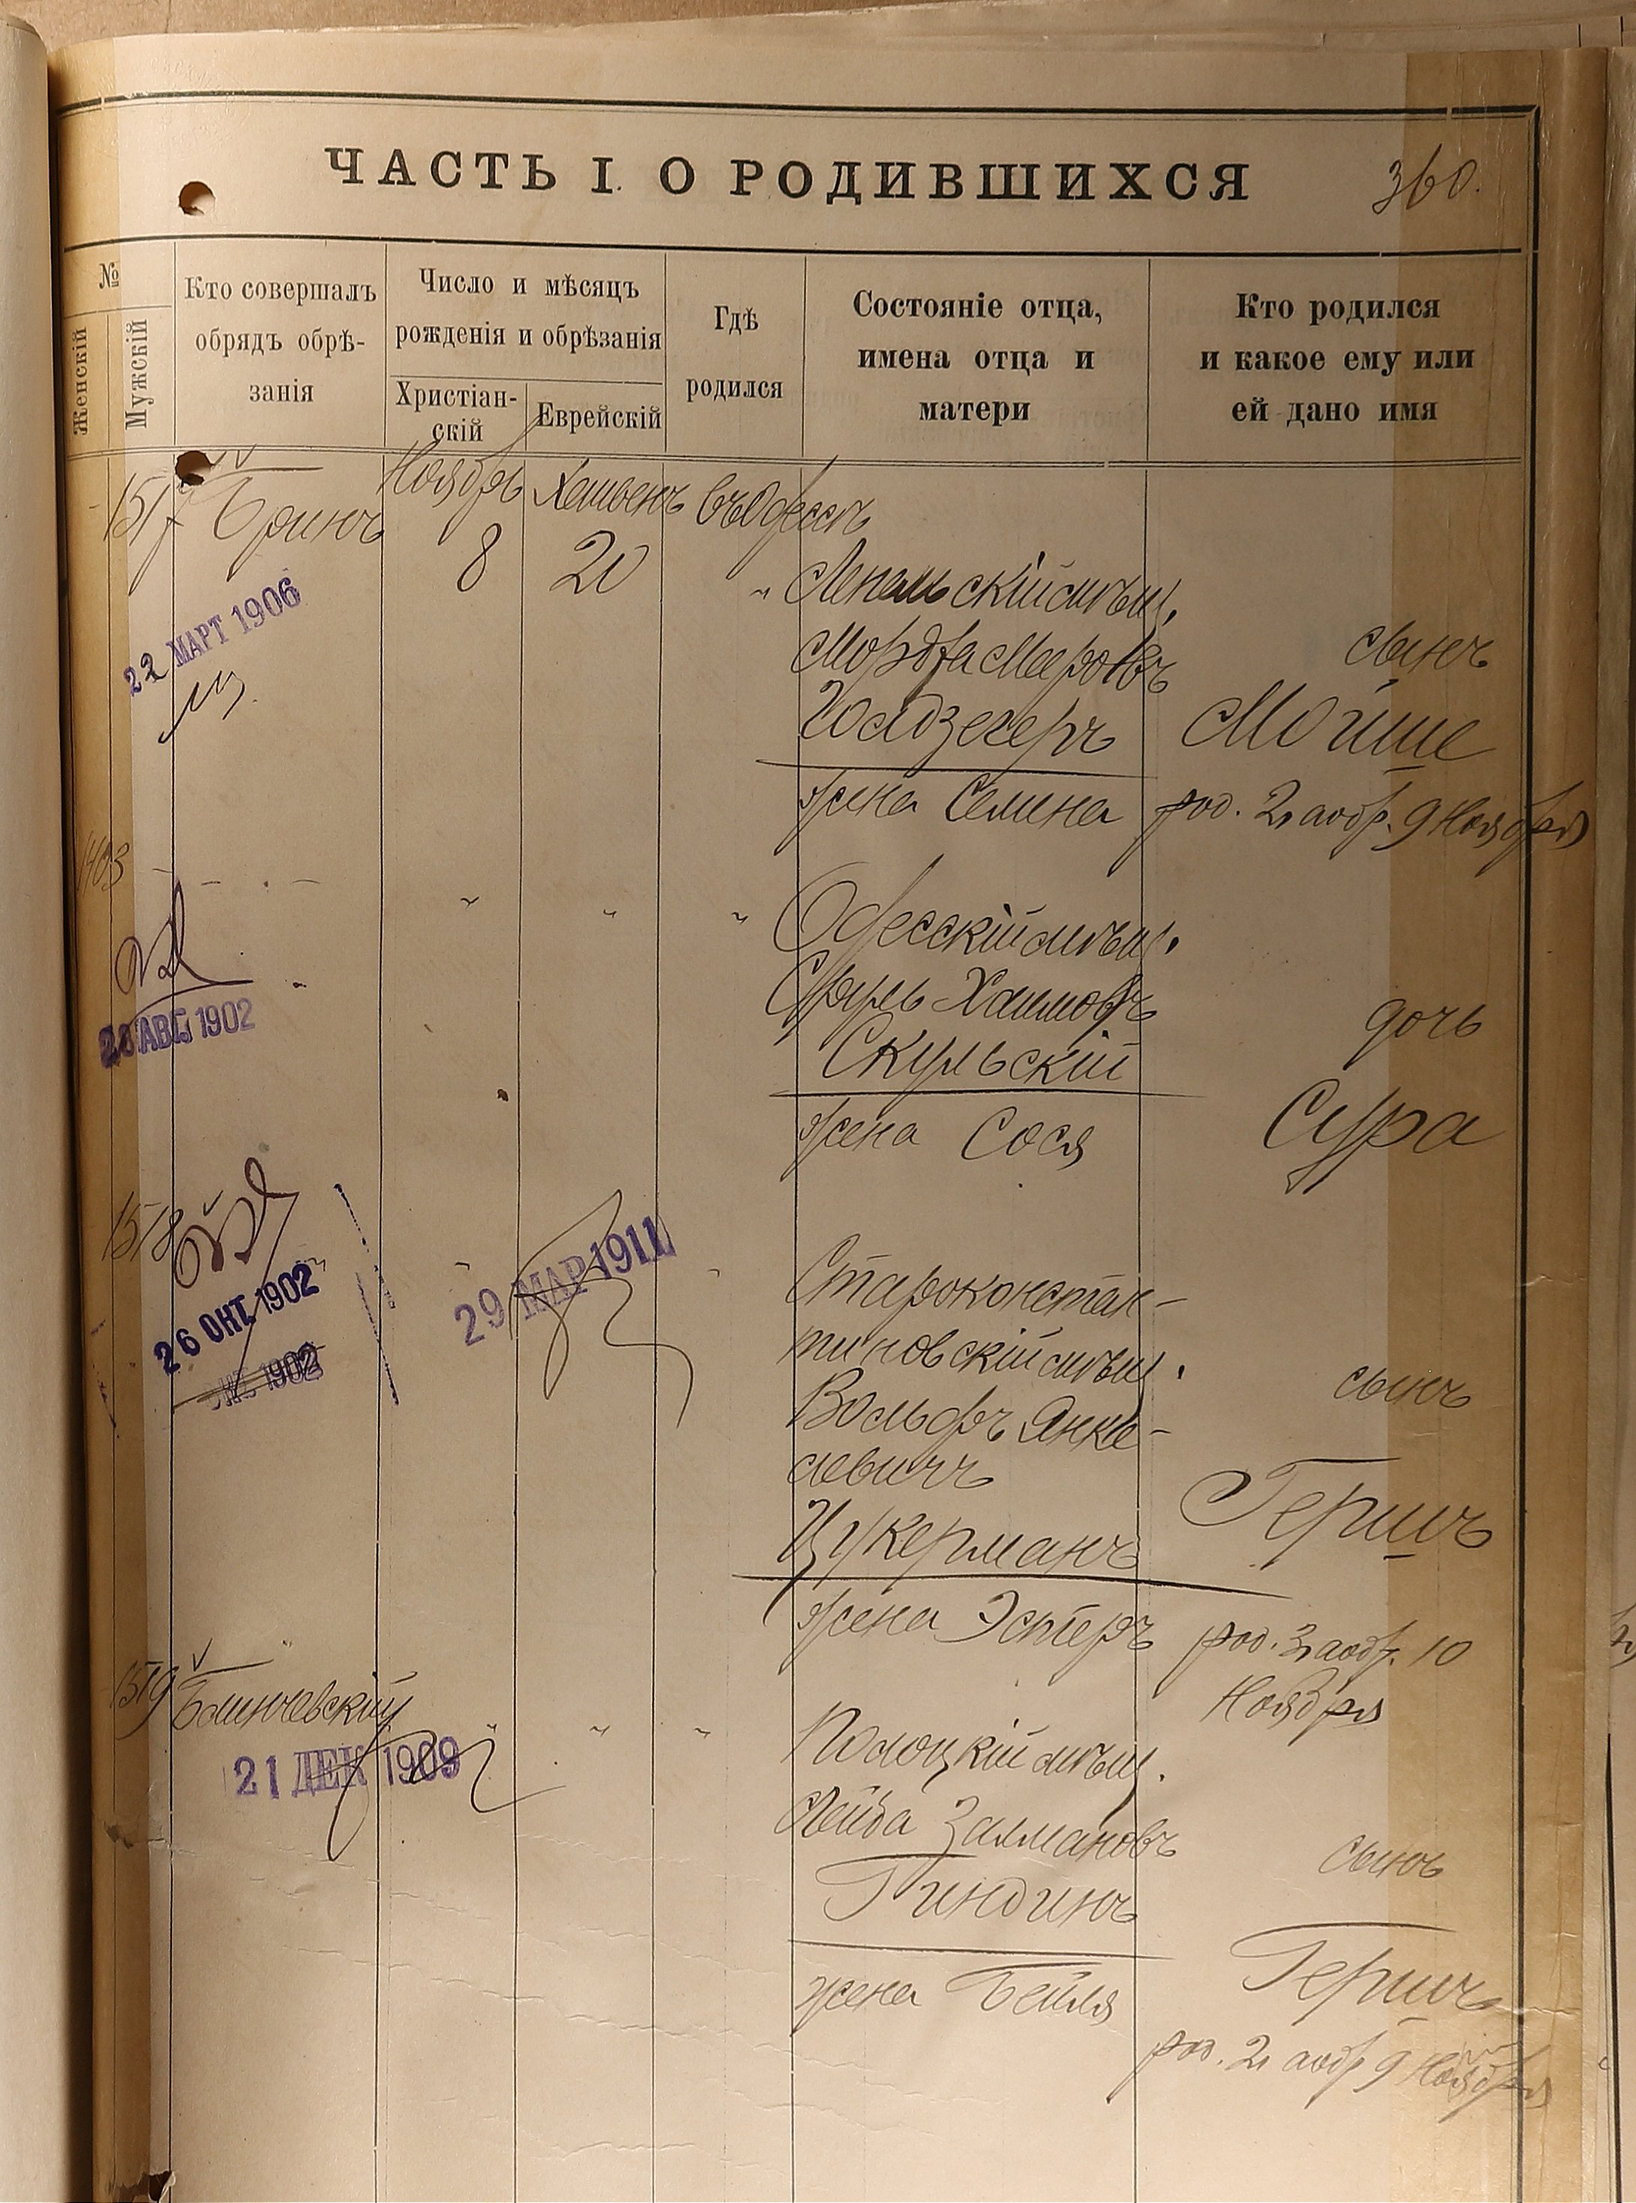 ЧАСТЬ I. О РОДИВШИХСЯ
360.
№
Женскій
Мужскій
Кто совершалъ
обрядъ обрѣ-
занія
Число и мѣсяцъ
рожденія и обрѣзанія
Христіан-
скій
Еврейскій
Гдѣ
родился
Состояніе отца,
имена отца и
матери
Кто родился
и какое ему или
ей дано имя
1517
Бринъ
Ноябрь
8
Хешвенъ
20
въ Одессѣ
22 МАРТ 1906
" Лепельскій мѣщ.
Мордха Мееровъ
Гольдзегеръ
жена Семена
сынъ
Мойше
род. 2, а обр. 9 Ноября
1403
" " "
28 АВГ. 1902
Одесскій мѣщ.
Сруль Хаимовъ
Скульскій
жена Сося
дочь
Сура
1518
26 ОКТ 1902
1902
29 МАР 1911
Староконстан-
тиновскій мѣщ.
Вольфъ Янке-
левичъ
Цукерманъ
жена Эстеръ
сынъ
Гершъ
род. 3, а обр. 10
Ноября
1519
Блинчевскій
21 ДЕК 1909
" " "
Полоцкій мѣщ.
Лейба Залмановъ
Гиндинъ
жена Бейля
сынъ
Гершъ
род. 2, а обр. 9 Ноября